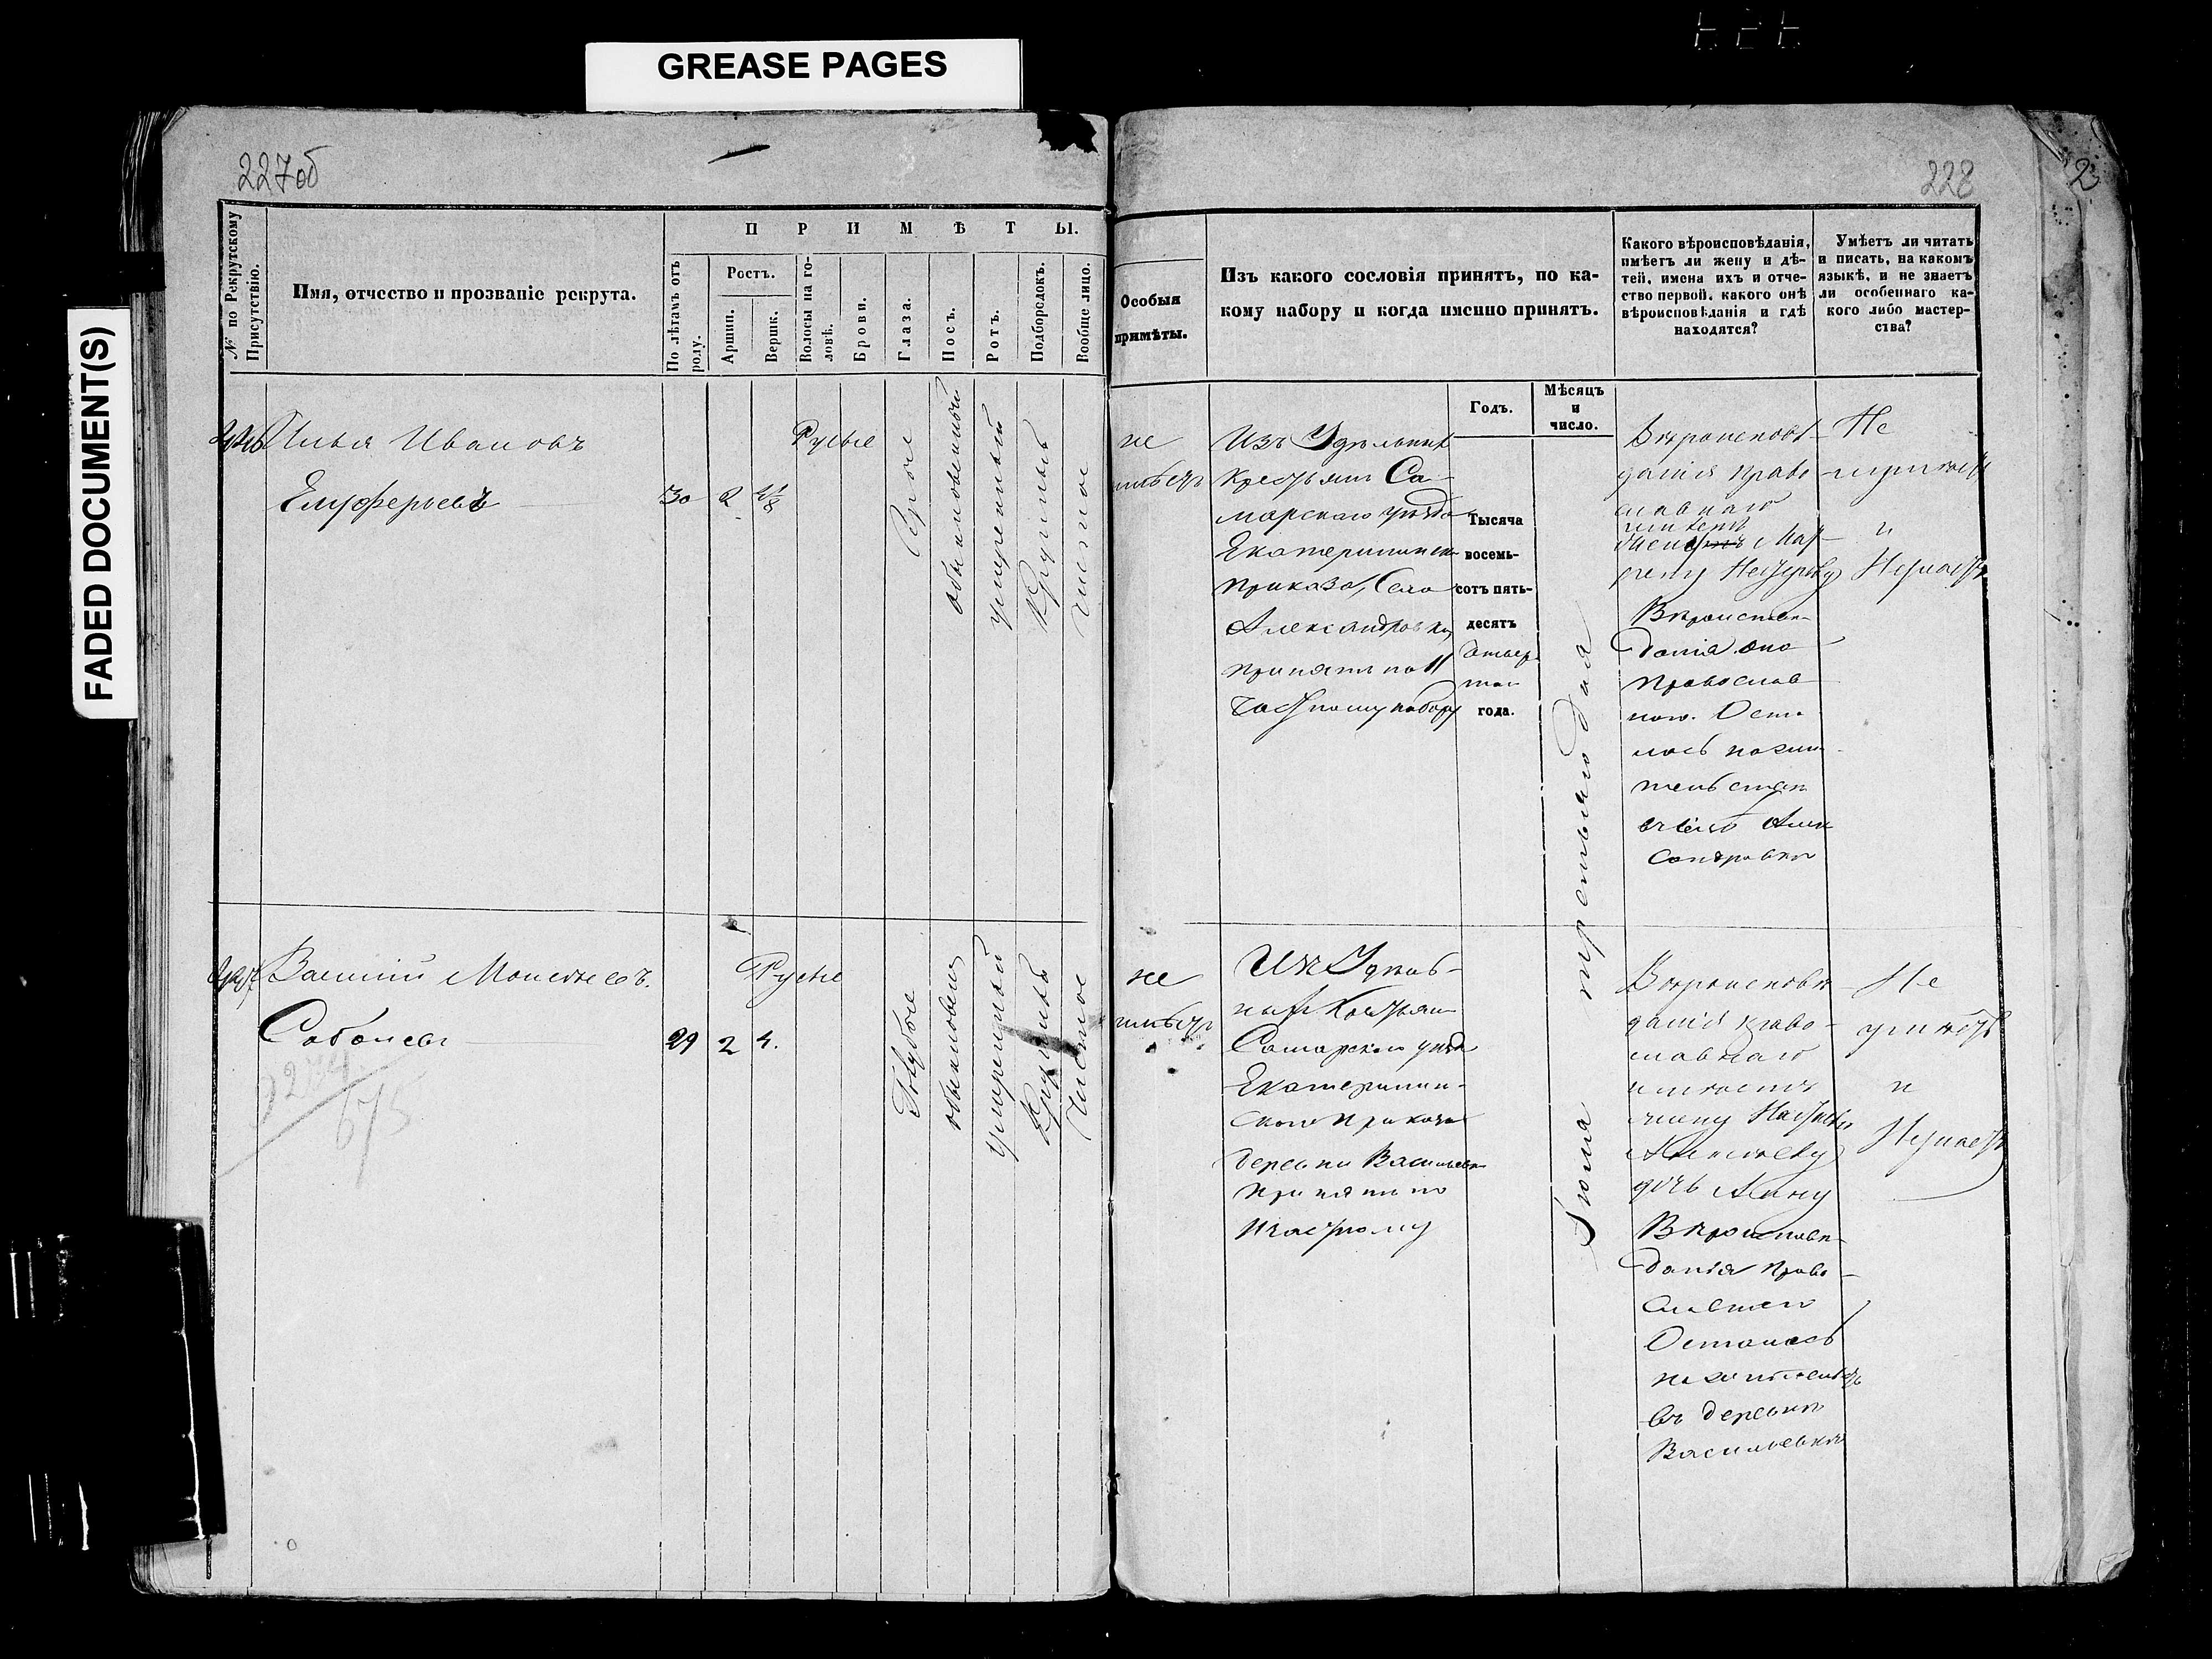 GREASE PAGES
FADED DOCUMENT(S)
227об
228
2
№ по Рекрутскому Присутствію.
Имя, отчество и прозваніе рекрута.
П Р И М Ѣ Т Ы.
По лѣтамъ отъ роду.
Ростъ.
Аршин.
Вершк.
Волосы на головѣ.
Брови.
Глаза.
Носъ.
Ротъ.
Подбородокъ.
Вообще лицо.
Особыя
примѣты.
Изъ какого сословія принятъ, по ка-
кому набору и когда именно принятъ.
Какого вѣроисповѣданія,
имѣетъ ли жену и дѣ-
тей, имена ихъ и отче-
ство первой, какого онѣ
вѣроисповѣданія и гдѣ
находятся?
Умѣетъ ли читать
и писать, на какомъ
языкѣ, и не знаетъ
ли особеннаго ка-
кого либо мастер-
ства?
Годъ.
Мѣсяцъ
и
число.
Илья Ивановъ
Елуферьевъ
30
2
Русые
Сѣрые
обыкновенный
умѣренный
Круглый
Чистое
не
имѣетъ
Изъ Удѣльныхъ
крестьянъ Са-
марскаго уѣзда
Екатерининск
приказа, Села
Александровки
принятъ по 11
частному набору
Тысяча
восемь-
сотъ пять-
десятъ
четвер-
таго
года.
Іюля третьяго дня
Вѣроисповѣ-
данія право-
славнаго
имѣетъ
жену
Вѣроиспов-
данія она
православ
наго. Оста
лась на жи
тельствѣ
въ селѣ Алек
сандровки
Не
и
Не знаетъ
Василій Моисѣевъ.
29
2
4.
Русые
Голубые
обыкновенный
умѣренный
Круглый
Чистое
не
имѣетъ
Изъ Удѣль-
ныхъ Крестьян
Самарскаго уѣзда
Екатеринин-
скаго приказа
деревни Васильевки
принятъ по
11 частному
Вѣроисповѣ-
данія право-
славнаго
имѣетъ
жену
Алексѣеву
дочь Анну
Вѣроисповѣ-
данія право-
славнаго
Осталась
на жительствѣ
въ деревнѣ
Васильевки
Не
умѣетъ
и
Не знаетъ
675